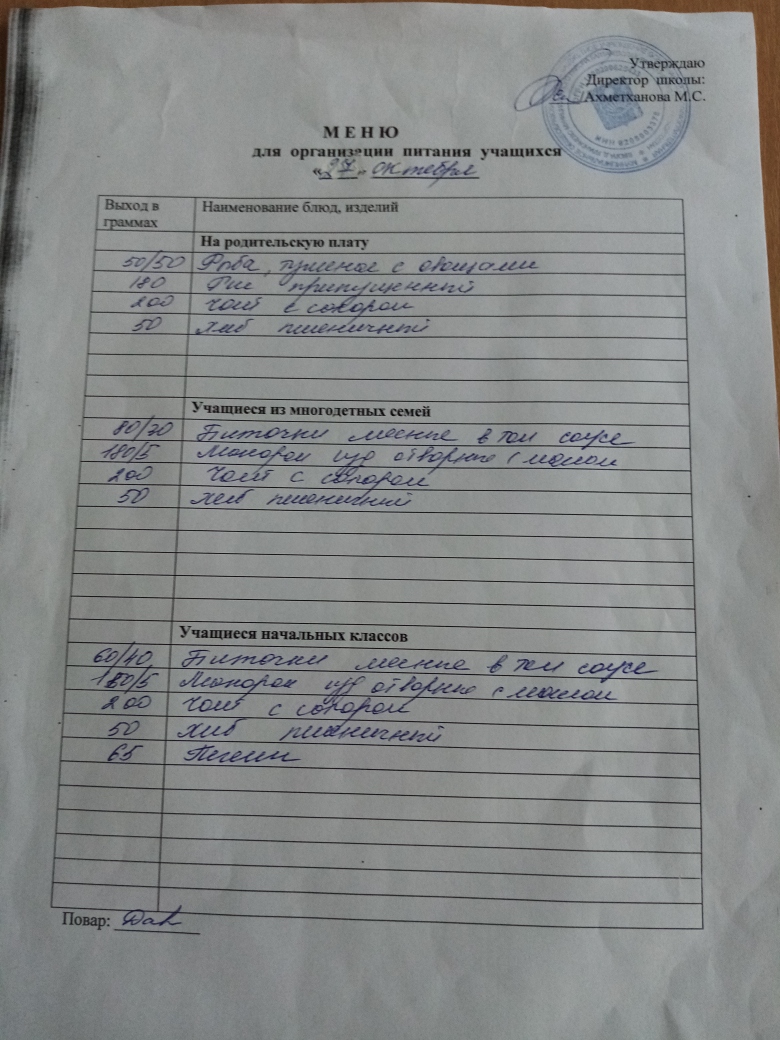 Утверждаю
Директор школы:
Ахметханова М.С.
М Е Н Ю
для организации питания учащихся
«27» октября
Выход в граммах Наименование блюд, изделий
На родительскую плату
50/50 Рыба, тушеное с овощами
180 Рис припущенный
200 Чай с сахаром
50 Хлеб пшеничный
Учащиеся из многодетных семей
80/30 Биточки мясные в том соусе
180/5 Макарон изд отварные с маслом
200 Чай с сахаром
50 Хлеб пшеничный
Учащиеся начальных классов
60/40 Биточки мясные в том соусе
180/5 Макарон изд отварные с маслом
200 Чай с сахаром
50 Хлеб пшеничный
65
Повар: